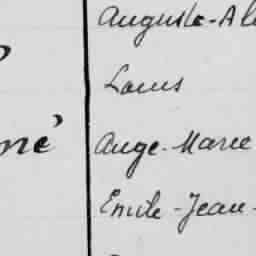 Auguste-Al
Louis
né
Ange-Marie
Emile-Jean-